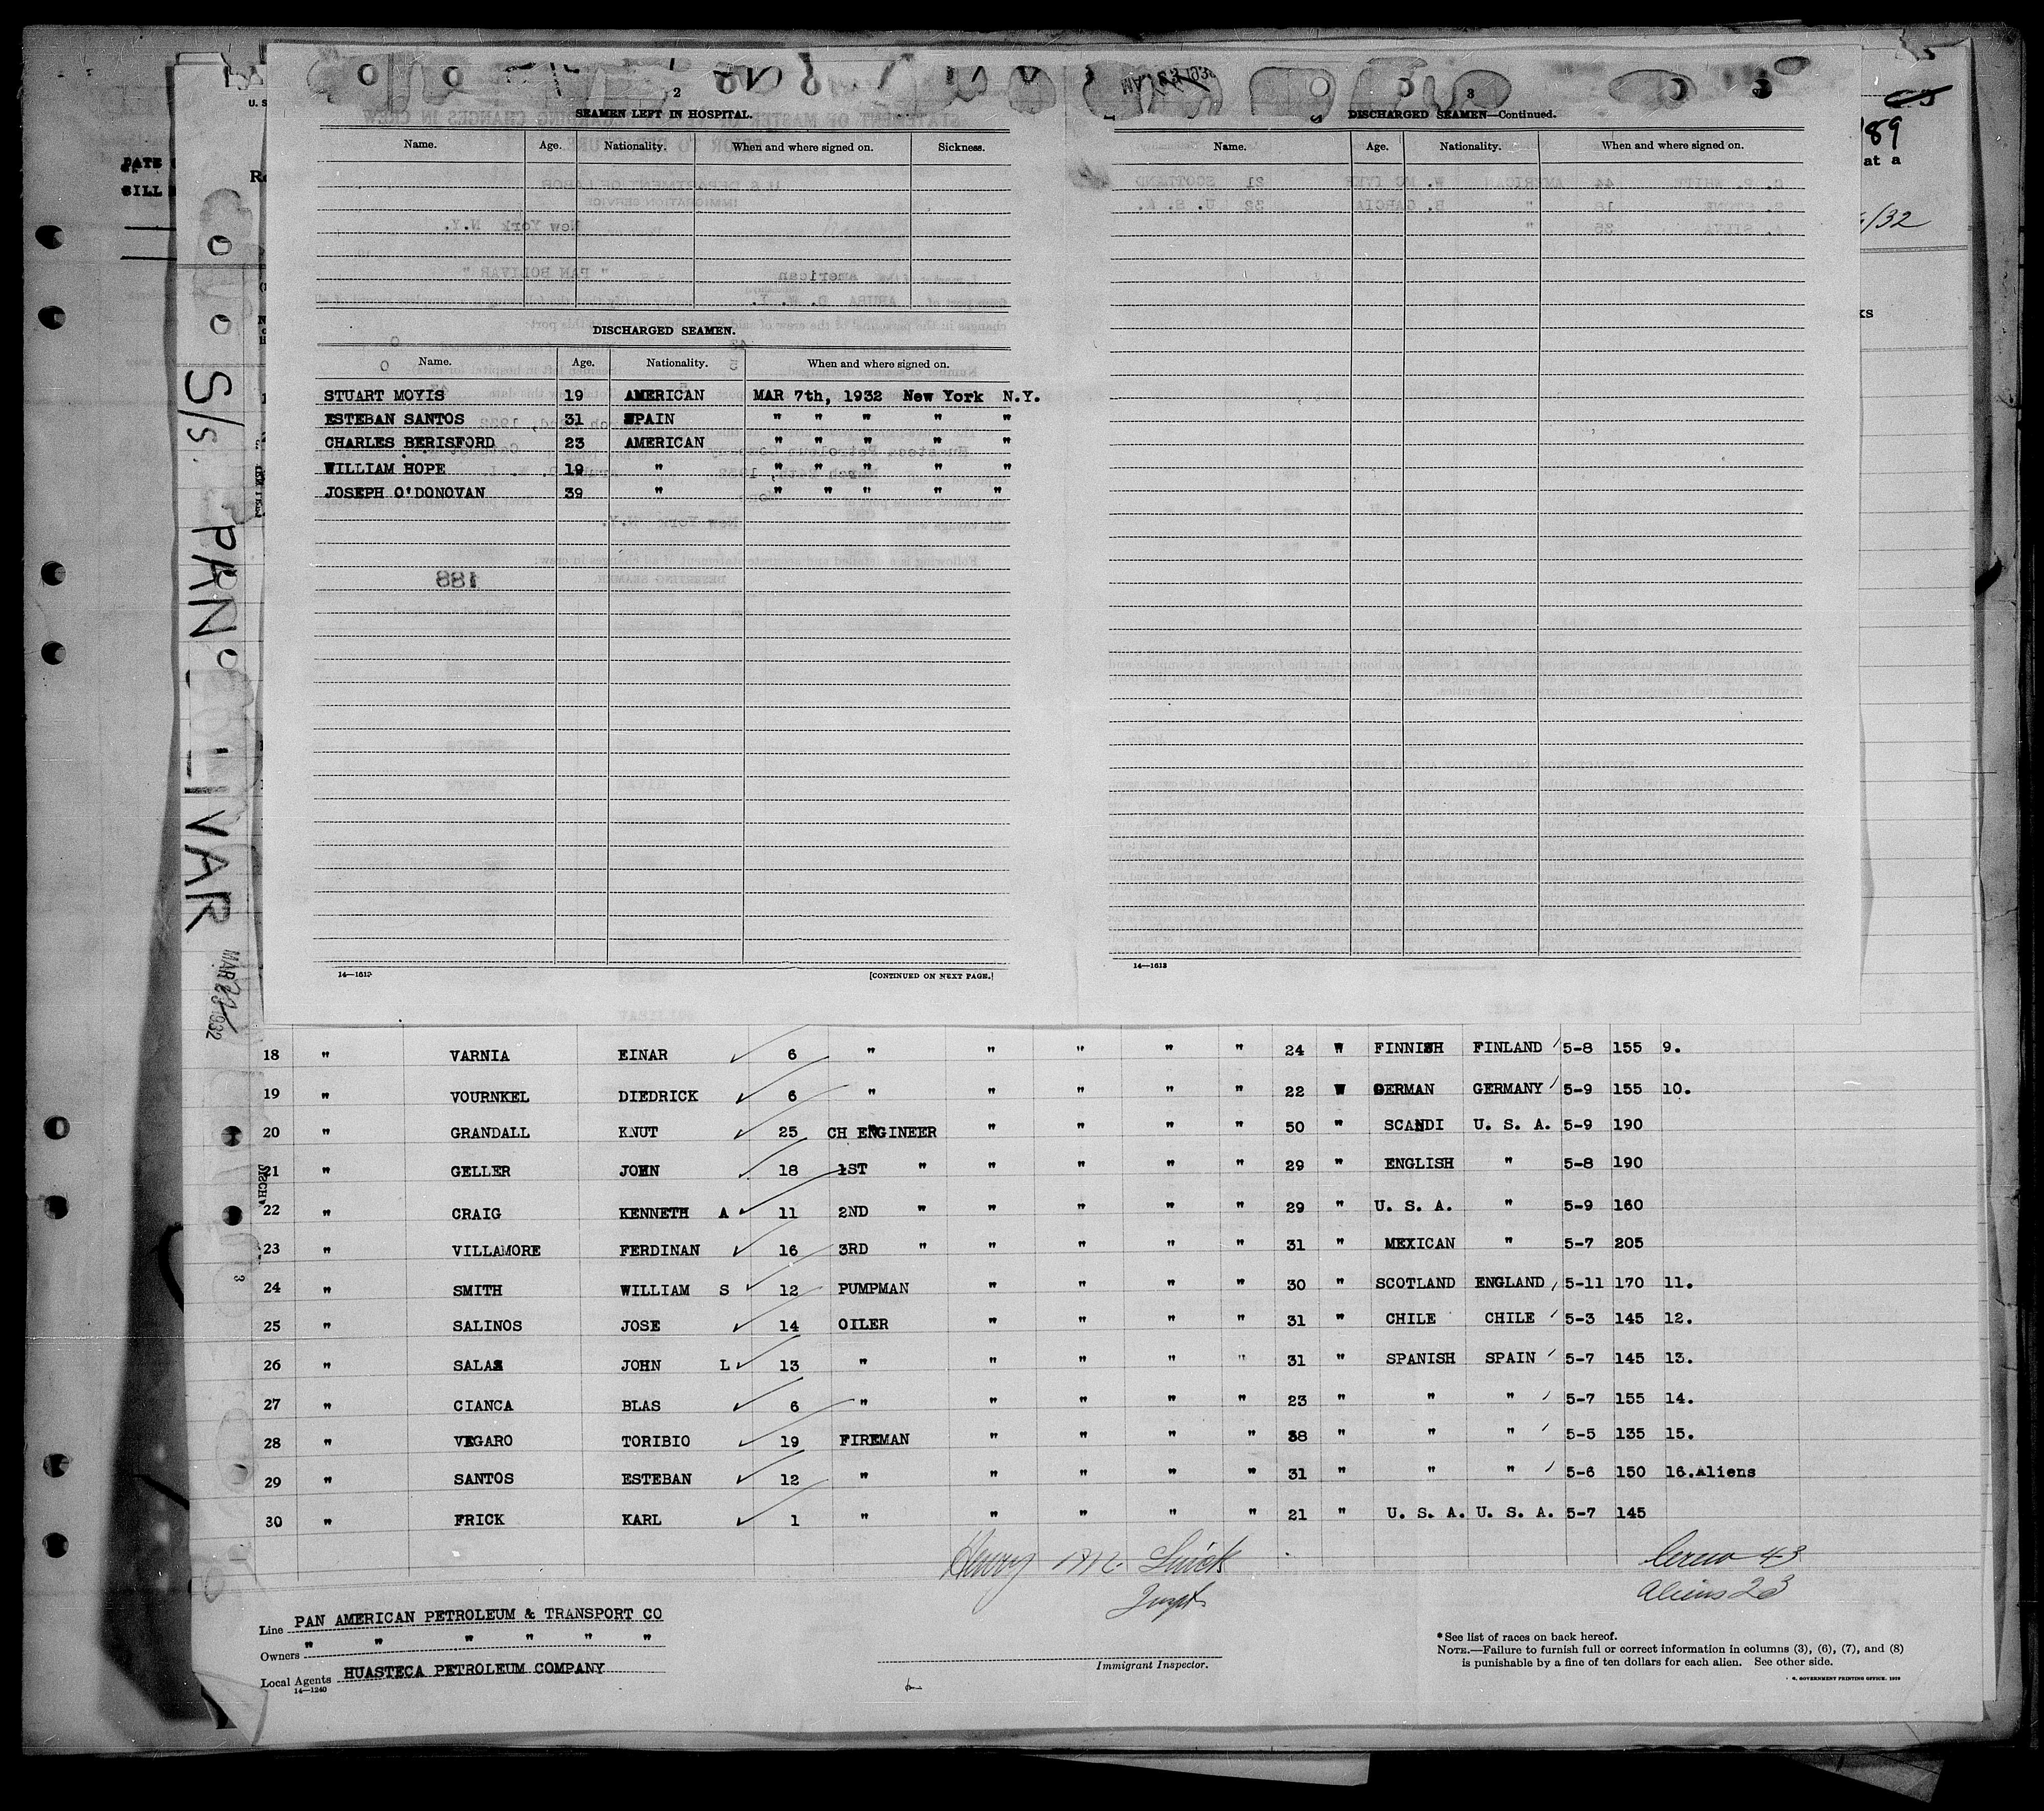 2
SEAMEN LEFT IN HOSPITAL.
Name. Age. Nationality. When and where signed on. Sickness.
DISCHARGED SEAMEN.
Name. Age. Nationality. When and where signed on.
STUART MOYIS 19 AMERICAN MAR 7th, 1932 New York N.Y.
ESTEBAN SANTOS 31 SPAIN " " " " "
CHARLES BERISFORD 23 AMERICAN " " " " "
WILLIAM HOPE 19 " " " " " "
JOSEPH O'DONOVAN 39 " " " " " "
188
14—1613
[CONTINUED ON NEXT PAGE.]
3
DISCHARGED SEAMEN—Continued.
Name. Age. Nationality. When and where signed on.
14—1613
189
at a
/32
S/s. PAN BOLIVAR
MAR 1932
18 " VARNIA EINAR 6 " " " " " 24 W FINNISH FINLAND 5-8 155 9.
19 " VOURNKEL DIEDRICK 6 " " " " " 22 W GERMAN GERMANY 5-9 155 10.
20 " GRANDALL KNUT 25 CH ENGINEER " " " " 50 " SCANDI U. S. A. 5-9 190
21 " GELLER JOHN 18 1ST " " " " " 29 " ENGLISH " 5-8 190
22 " CRAIG KENNETH A 11 2ND " " " " " 29 " U. S. A. " 5-9 160
23 " VILLAMORE FERDINAN 16 3RD " " " " " 31 " MEXICAN " 5-7 205
24 " SMITH WILLIAM S 12 PUMPMAN " " " " 30 " SCOTLAND ENGLAND 5-11 170 11.
25 " SALINOS JOSE 14 OILER " " " " 31 " CHILE CHILE 5-3 145 12.
26 " SALAS JOHN L 13 " " " " " 31 " SPANISH SPAIN 5-7 145 13.
27 " CIANCA BLAS 6 " " " " " 23 " " " 5-7 155 14.
28 " VEGARO TORIBIO 19 FIREMAN " " " " 38 " " " 5-5 135 15.
29 " SANTOS ESTEBAN 12 " " " " " 31 " " " 5-6 150 16.Aliens
30 " FRICK KARL 1 " " " " " 21 " U. S. A. U. S. A. 5-7 145
Crew 43
Aliens 23
Line PAN AMERICAN PETROLEUM & TRANSPORT CO
Owners " " " " " "
Local Agents HUASTECA PETROLEUM COMPANY
14—1240
Immigrant Inspector.
*See list of races on back hereof.
NOTE.—Failure to furnish full or correct information in columns (3), (6), (7), and (8)
is punishable by a fine of ten dollars for each alien. See other side.
GOVERNMENT PRINTING OFFICE. 1929